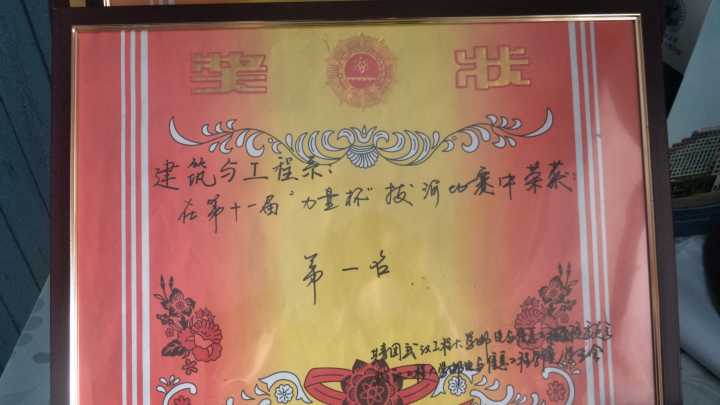 奖状
建筑与工程系:
在第十一届“力量杯”拔河比赛中荣获:
第一名
共青团武汉工程大学邮电与信息工程学院委员会
武汉工程大学邮电与信息工程学院学生会